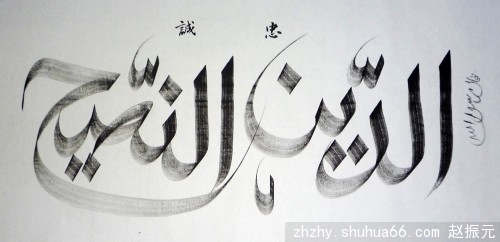 忠 誠
الدّين النّصيح
zhzhy.shuhua66.com 赵振元